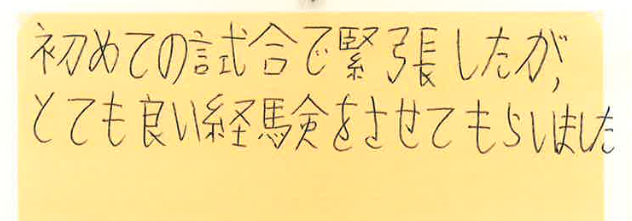 初めての試合で緊張したが,
とても良い経験をさせてもらいました